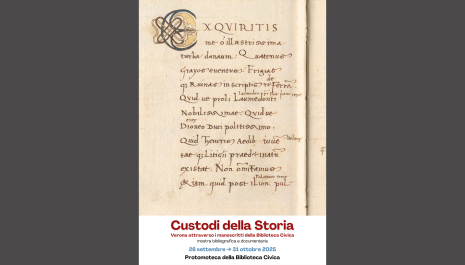 EXQVIRITIS
me o illustrissima
turba danaum. Quatenus
Grayos eventus. Frigias
q; Ruinas inscriptis Ferra
Quid ve proli Laumedonti
Nobilissimae. Quidve
Dioneo Duci politissimo.
existat. Non omittamus
Etiam quid post ilion pul
Custodi della Storia
Verona attraverso i manoscritti della Biblioteca Civica
mostra bibliografica e documentaria
26 settembre → 31 ottobre 2025
Protomoteca della Biblioteca Civica